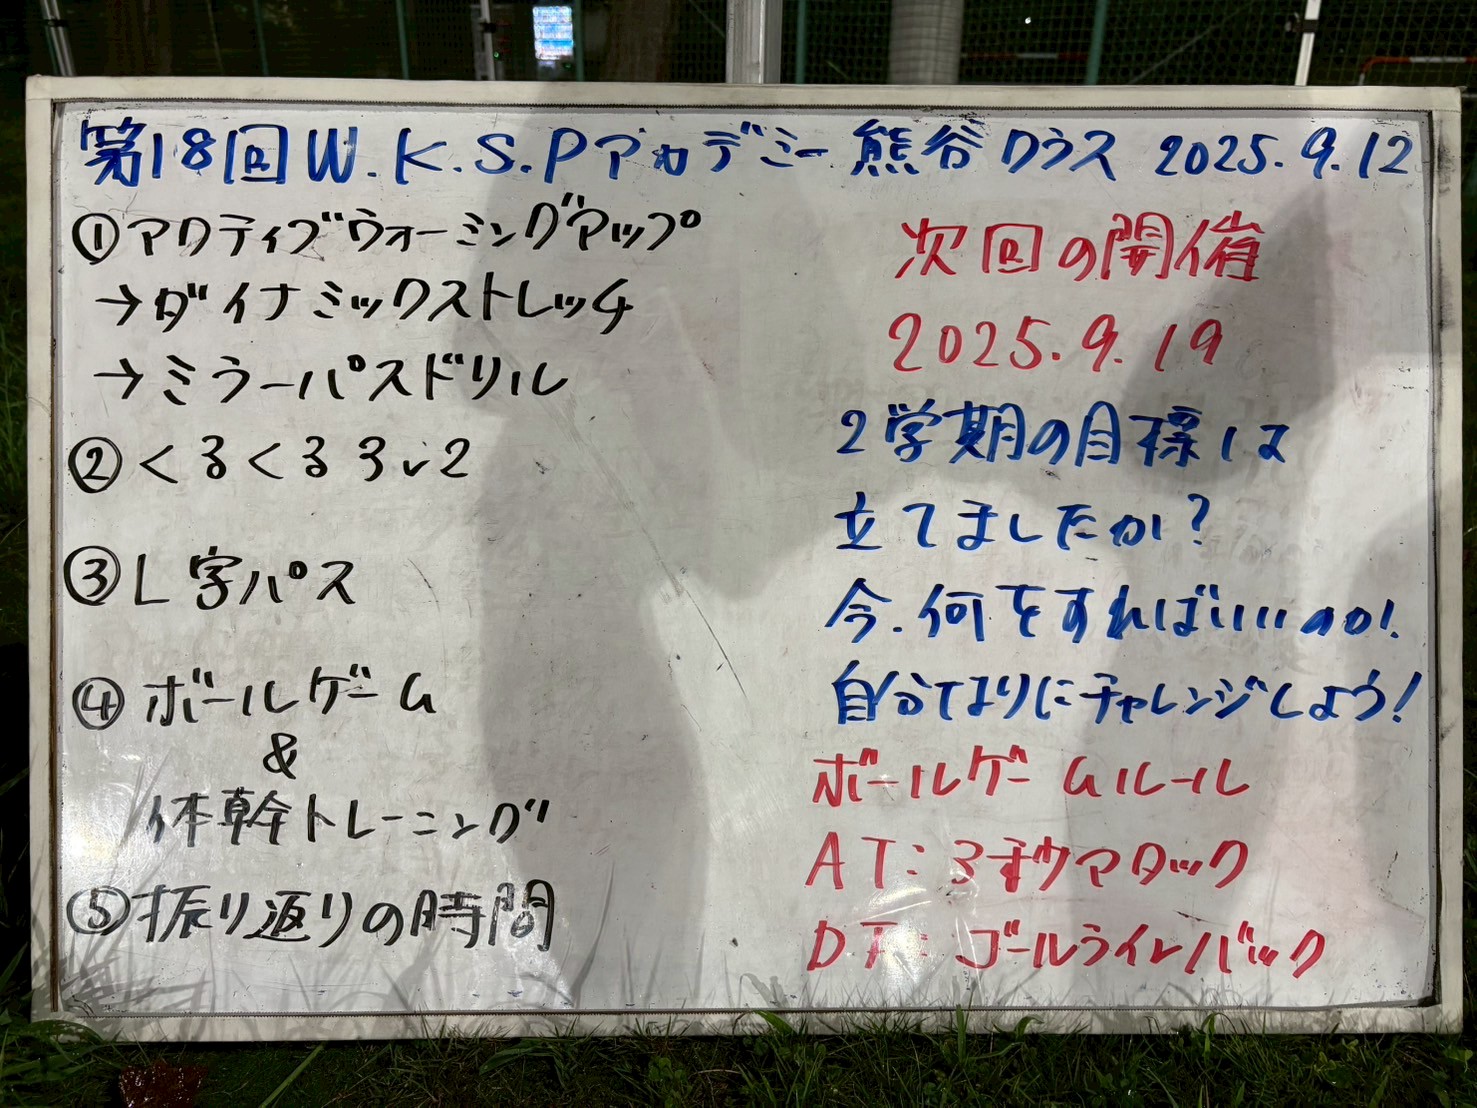 第18回W.K.S.Pアカデミー熊谷クラス 2025.9.12
①アクティブウォーミングアップ
→ダイナミックストレッチ
→ミラーパスドリル
②くるくる3v2
③L字パス
④ボールゲーム
&
体幹トレーニング
⑤振り返りの時間
次回の開催
2025.9.19
2学期の目標は
立てましたか?
今.何をすればいいのか!
自分なりにチャレンジしよう!
ボールゲームルール
AT:3チャンアタック
DF:ゴールラインバック